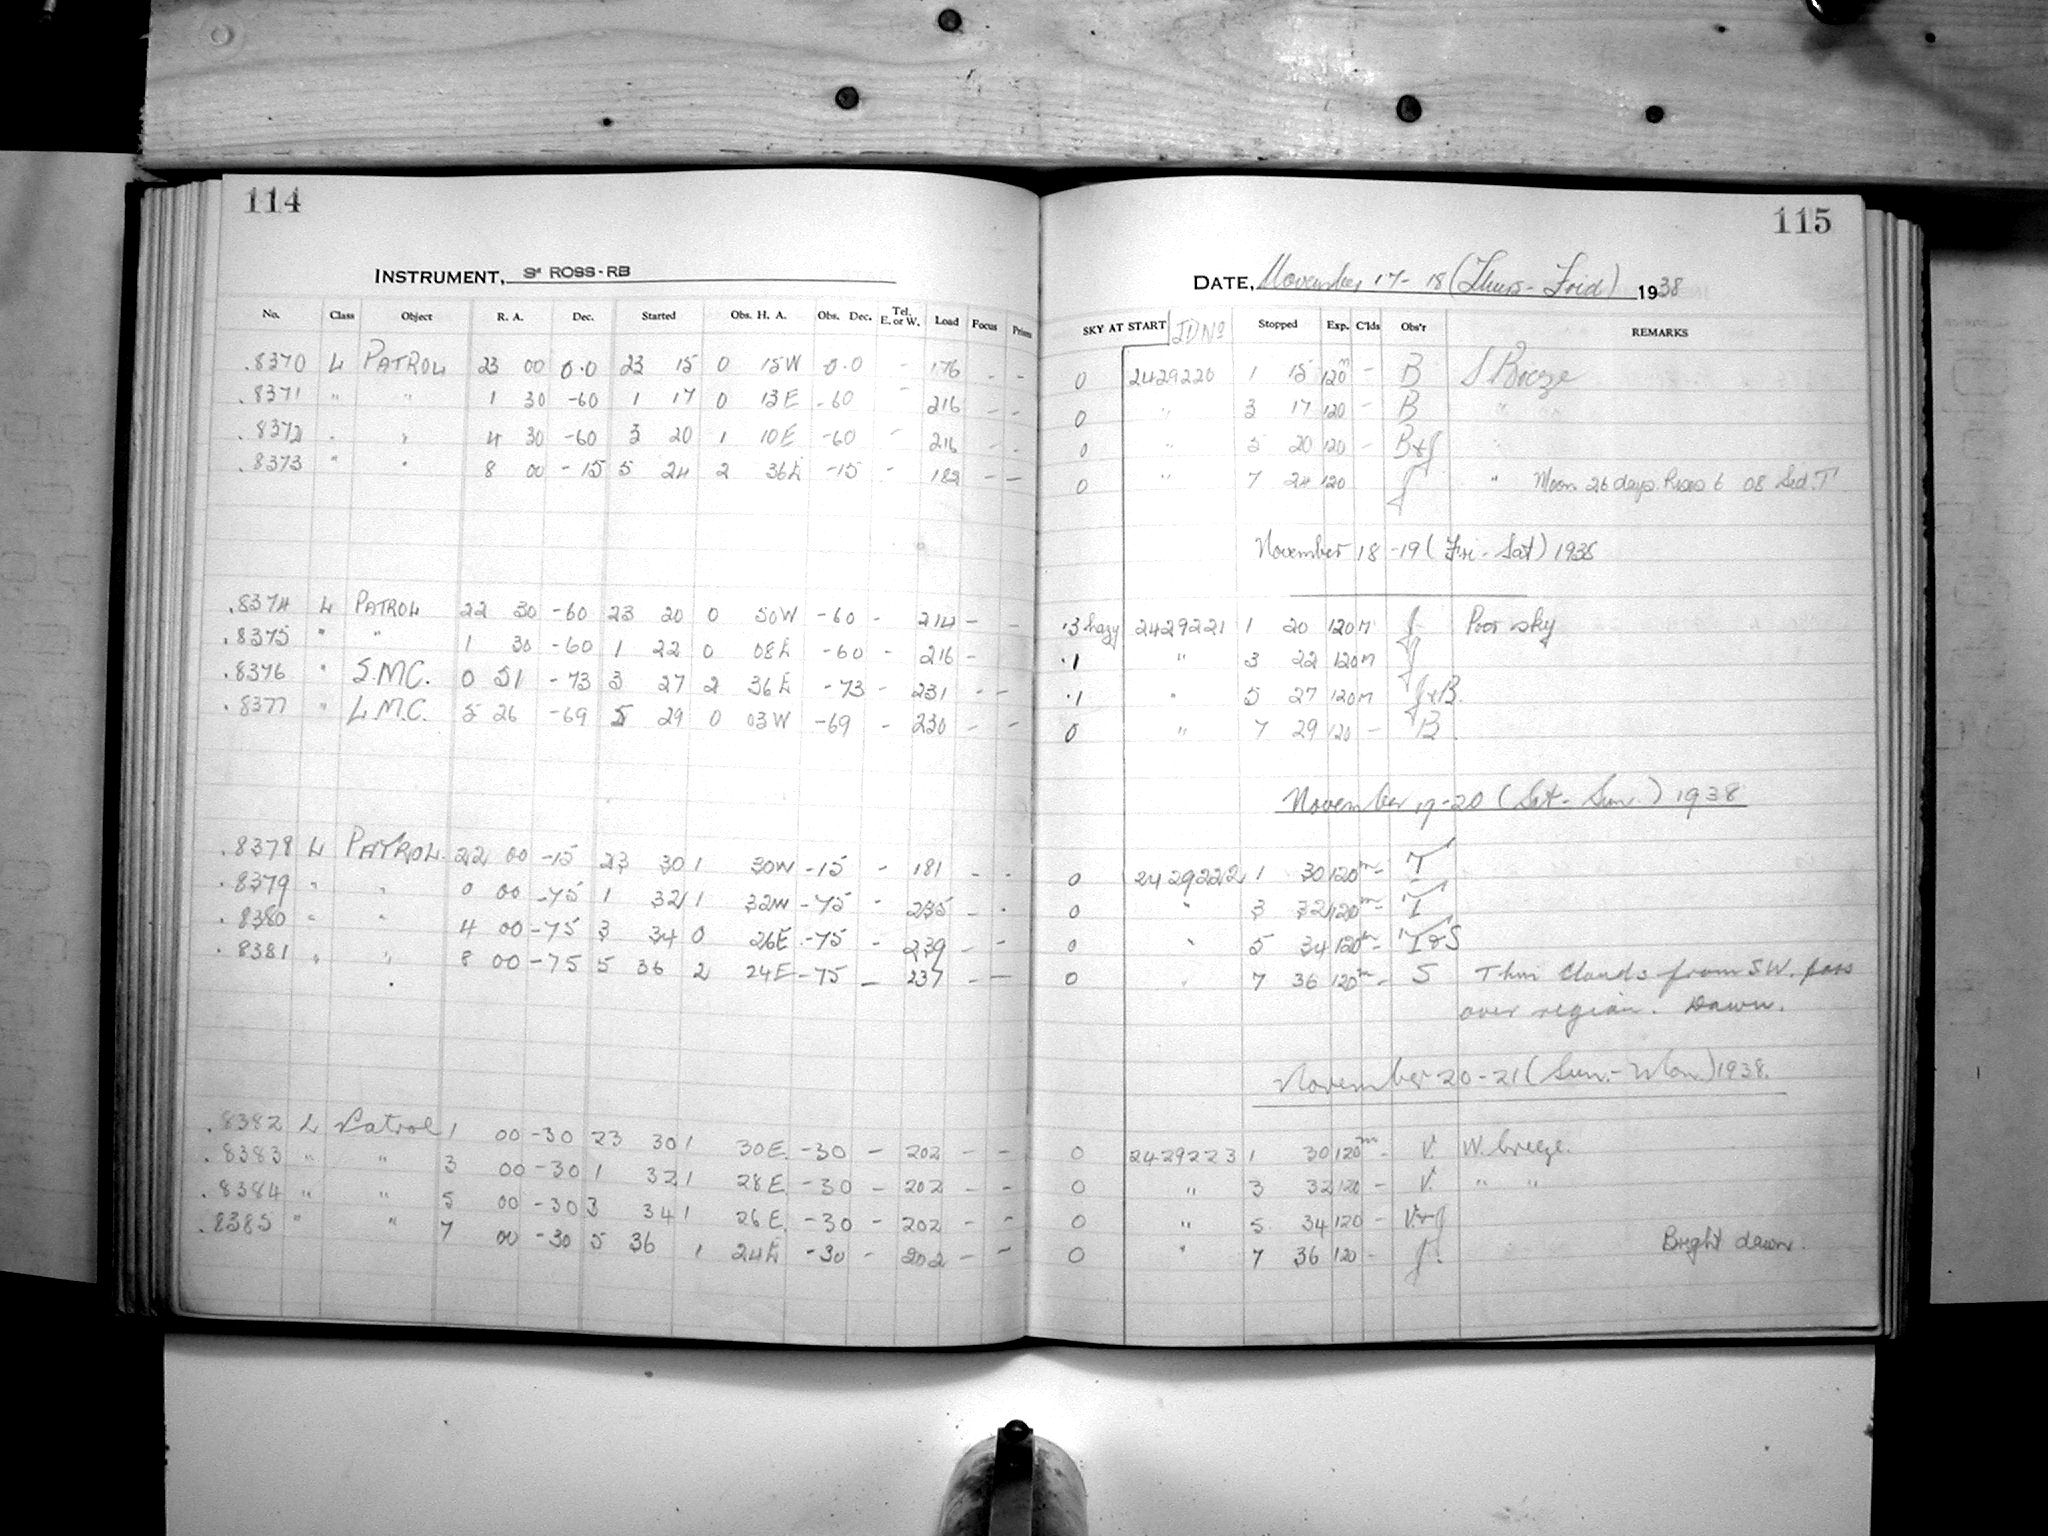 114
INSTRUMENT, 3" ROSS-RB
No. Class Object R. A. Dec. Started Obs. H. A. Obs. Dec. Tel. E. or W. Load Focus Prism
.8370 L PATROL 23 00 0.0 23 15 0 15W 0.0 - 176 - -
.8371 " " 1 30 -60 1 17 0 13E -60 - 216 - -
.8372 " " 4 30 -60 3 20 1 10E -60 - 216 - -
.8373 " " 8 00 -15 5 24 2 36E -15 - 182 - -
.8374 L PATROL 22 30 -60 23 20 0 50W -60 - 214 - -
.8375 " " 1 30 -60 1 22 0 08E -60 - 216 -
.8376 " S.M.C. 0 51 -73 3 27 2 36E -73 - 231 - -
.8377 " L.M.C. 5 26 -69 5 29 0 03W -69 - 230 - -
.8378 L PATROL 22 00 -15 23 30 1 30W -15 - 181 - -
.8379 " " 0 00 -75 1 32 1 32W -75 - 235 - -
.8380 " " 4 00 -75 3 34 0 26E -75 - 239 - -
.8381 " " 8 00 -75 5 36 2 24E -75 - 237 - -
.8382 L Patrol 1 00 -30 23 30 1 30E. -30 - 202 - -
.8383 " " 3 00 -30 1 32 1 28E. -30 - 202 - -
.8384 " " 5 00 -30 3 34 1 26E. -30 - 202 - -
.8385 " " 7 00 -30 5 36 1 24E -30 - 202 - -
115
DATE, November 17-18 (Thurs-Frid) 1938
SKY AT START JD No Stopped Exp. C'lds Obs'r REMARKS
0 2429220 1 15 120m - B S Breeze
0 " 3 17 120 - B "
0 " 5 20 120 - B&J "
0 " 7 24 120 J " Moon 26 days. Rises 6 08 Sid. T
November 18-19 (Fri-Sat) 1938
.3 hazy 2429221 1 20 120m J Poor sky
.1 " 3 22 120m J
.1 " 5 27 120m J&B.
0 " 7 29 120 - B.
November 19-20 (Sat-Sun.) 1938
0 2429222 1 30 120m - T
0 " 3 32 120m - T
0 " 5 34 120m - T&S
0 " 7 36 120m - S Thin Clouds from SW. pass
over region. Dawn.
November 20-21 (Sun.-Mon.) 1938.
0 2429223 1 30 120m - V. W. breeze.
0 " 3 32 120 - V. " "
0 " 5 34 120 - V&J
0 " 7 36 120 - J. Bright dawn.